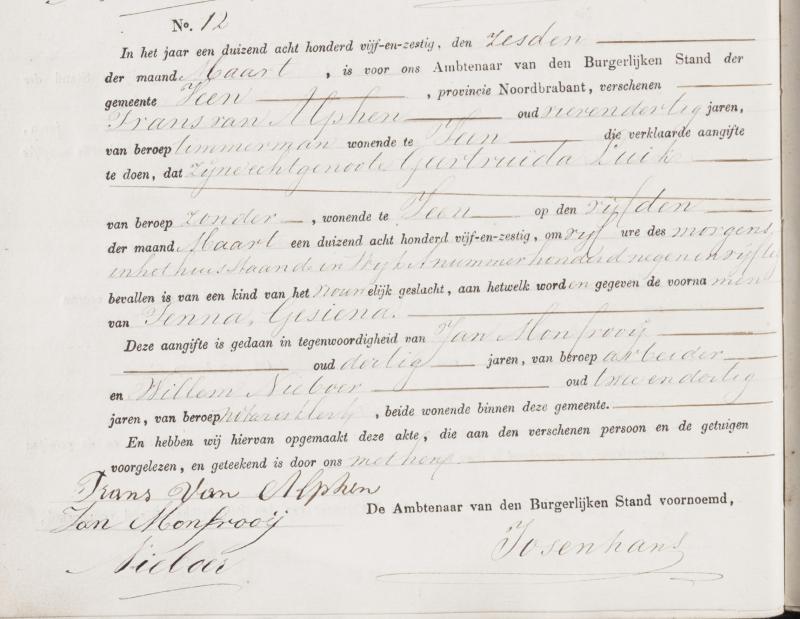 No. 12
In het jaar een duizend acht honderd vijf-en-zestig, den zesden
der maand Maart, is voor ons Ambtenaar van den Burgerlijken Stand der
gemeente Veen, provincie Noordbrabant, verschenen
Frans van Alphen oud vierendertig jaren,
van beroep timmerman wonende te Veen die verklaarde aangifte
te doen, dat zijne echtgenoote Geertruida Kuik
van beroep zonder, wonende te Veen op den vijfden
der maand Maart een duizend acht honderd vijf-en-zestig, om vijf ure des morgens,
in het huis staande in Wijk A nummer honderd negen en vijftig
bevallen is van een kind van het vrouwelijk geslacht, aan hetwelk worden gegeven de voornamen
van Jenna, Gesiena.
Deze aangifte is gedaan in tegenwoordigheid van Jan Monfrooij
oud dertig jaren, van beroep arbeider
en Willem Nieboer oud twee en dertig
jaren, van beroep, beide wonende binnen deze gemeente.
En hebben wij hiervan opgemaakt deze akte, die aan den verschenen persoon en de getuigen
voorgelezen, en geteekend is door ons met hen.
Frans Van Alphen
De Ambtenaar van den Burgerlijken Stand voornoemd,
Jan Monfrooij
Josenhans
Nieboer